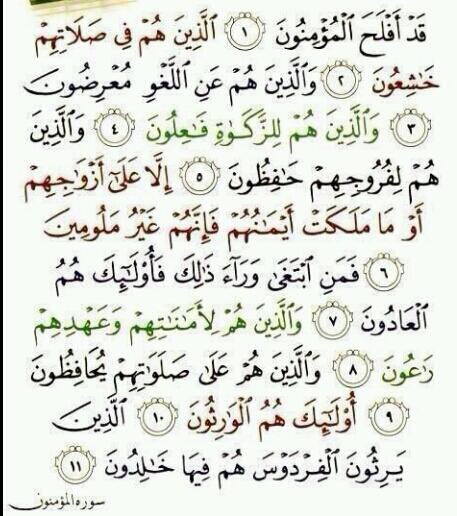 قَدْ أَفْلَحَ الْمُؤْمِنُونَ ١ الَّذِينَ هُمْ فِي صَلَاتِهِمْ
خَاشِعُونَ ٢ وَالَّذِينَ هُمْ عَنِ اللَّغْوِ مُعْرِضُونَ
٣ وَالَّذِينَ هُمْ لِلزَّكَوٰةِ فَاعِلُونَ ٤ وَالَّذِينَ
هُمْ لِفُرُوجِهِمْ حَافِظُونَ ٥ إِلَّا عَلَىٰ أَزْوَاجِهِمْ
أَوْ مَا مَلَكَتْ أَيْمَانُهُمْ فَإِنَّهُمْ غَيْرُ مَلُومِينَ
٦ فَمَنِ ابْتَغَىٰ وَرَاءَ ذَٰلِكَ فَأُولَـٰئِكَ هُمُ
الْعَادُونَ ٧ وَالَّذِينَ هُمْ لِأَمَانَاتِهِمْ وَعَهْدِهِمْ
رَاعُونَ ٨ وَالَّذِينَ هُمْ عَلَىٰ صَلَوَاتِهِمْ يُحَافِظُونَ
٩ أُولَـٰئِكَ هُمُ الْوَارِثُونَ ١٠ الَّذِينَ
يَرِثُونَ الْفِرْدَوْسَ هُمْ فِيهَا خَالِدُونَ ١١
سورة المؤمنون